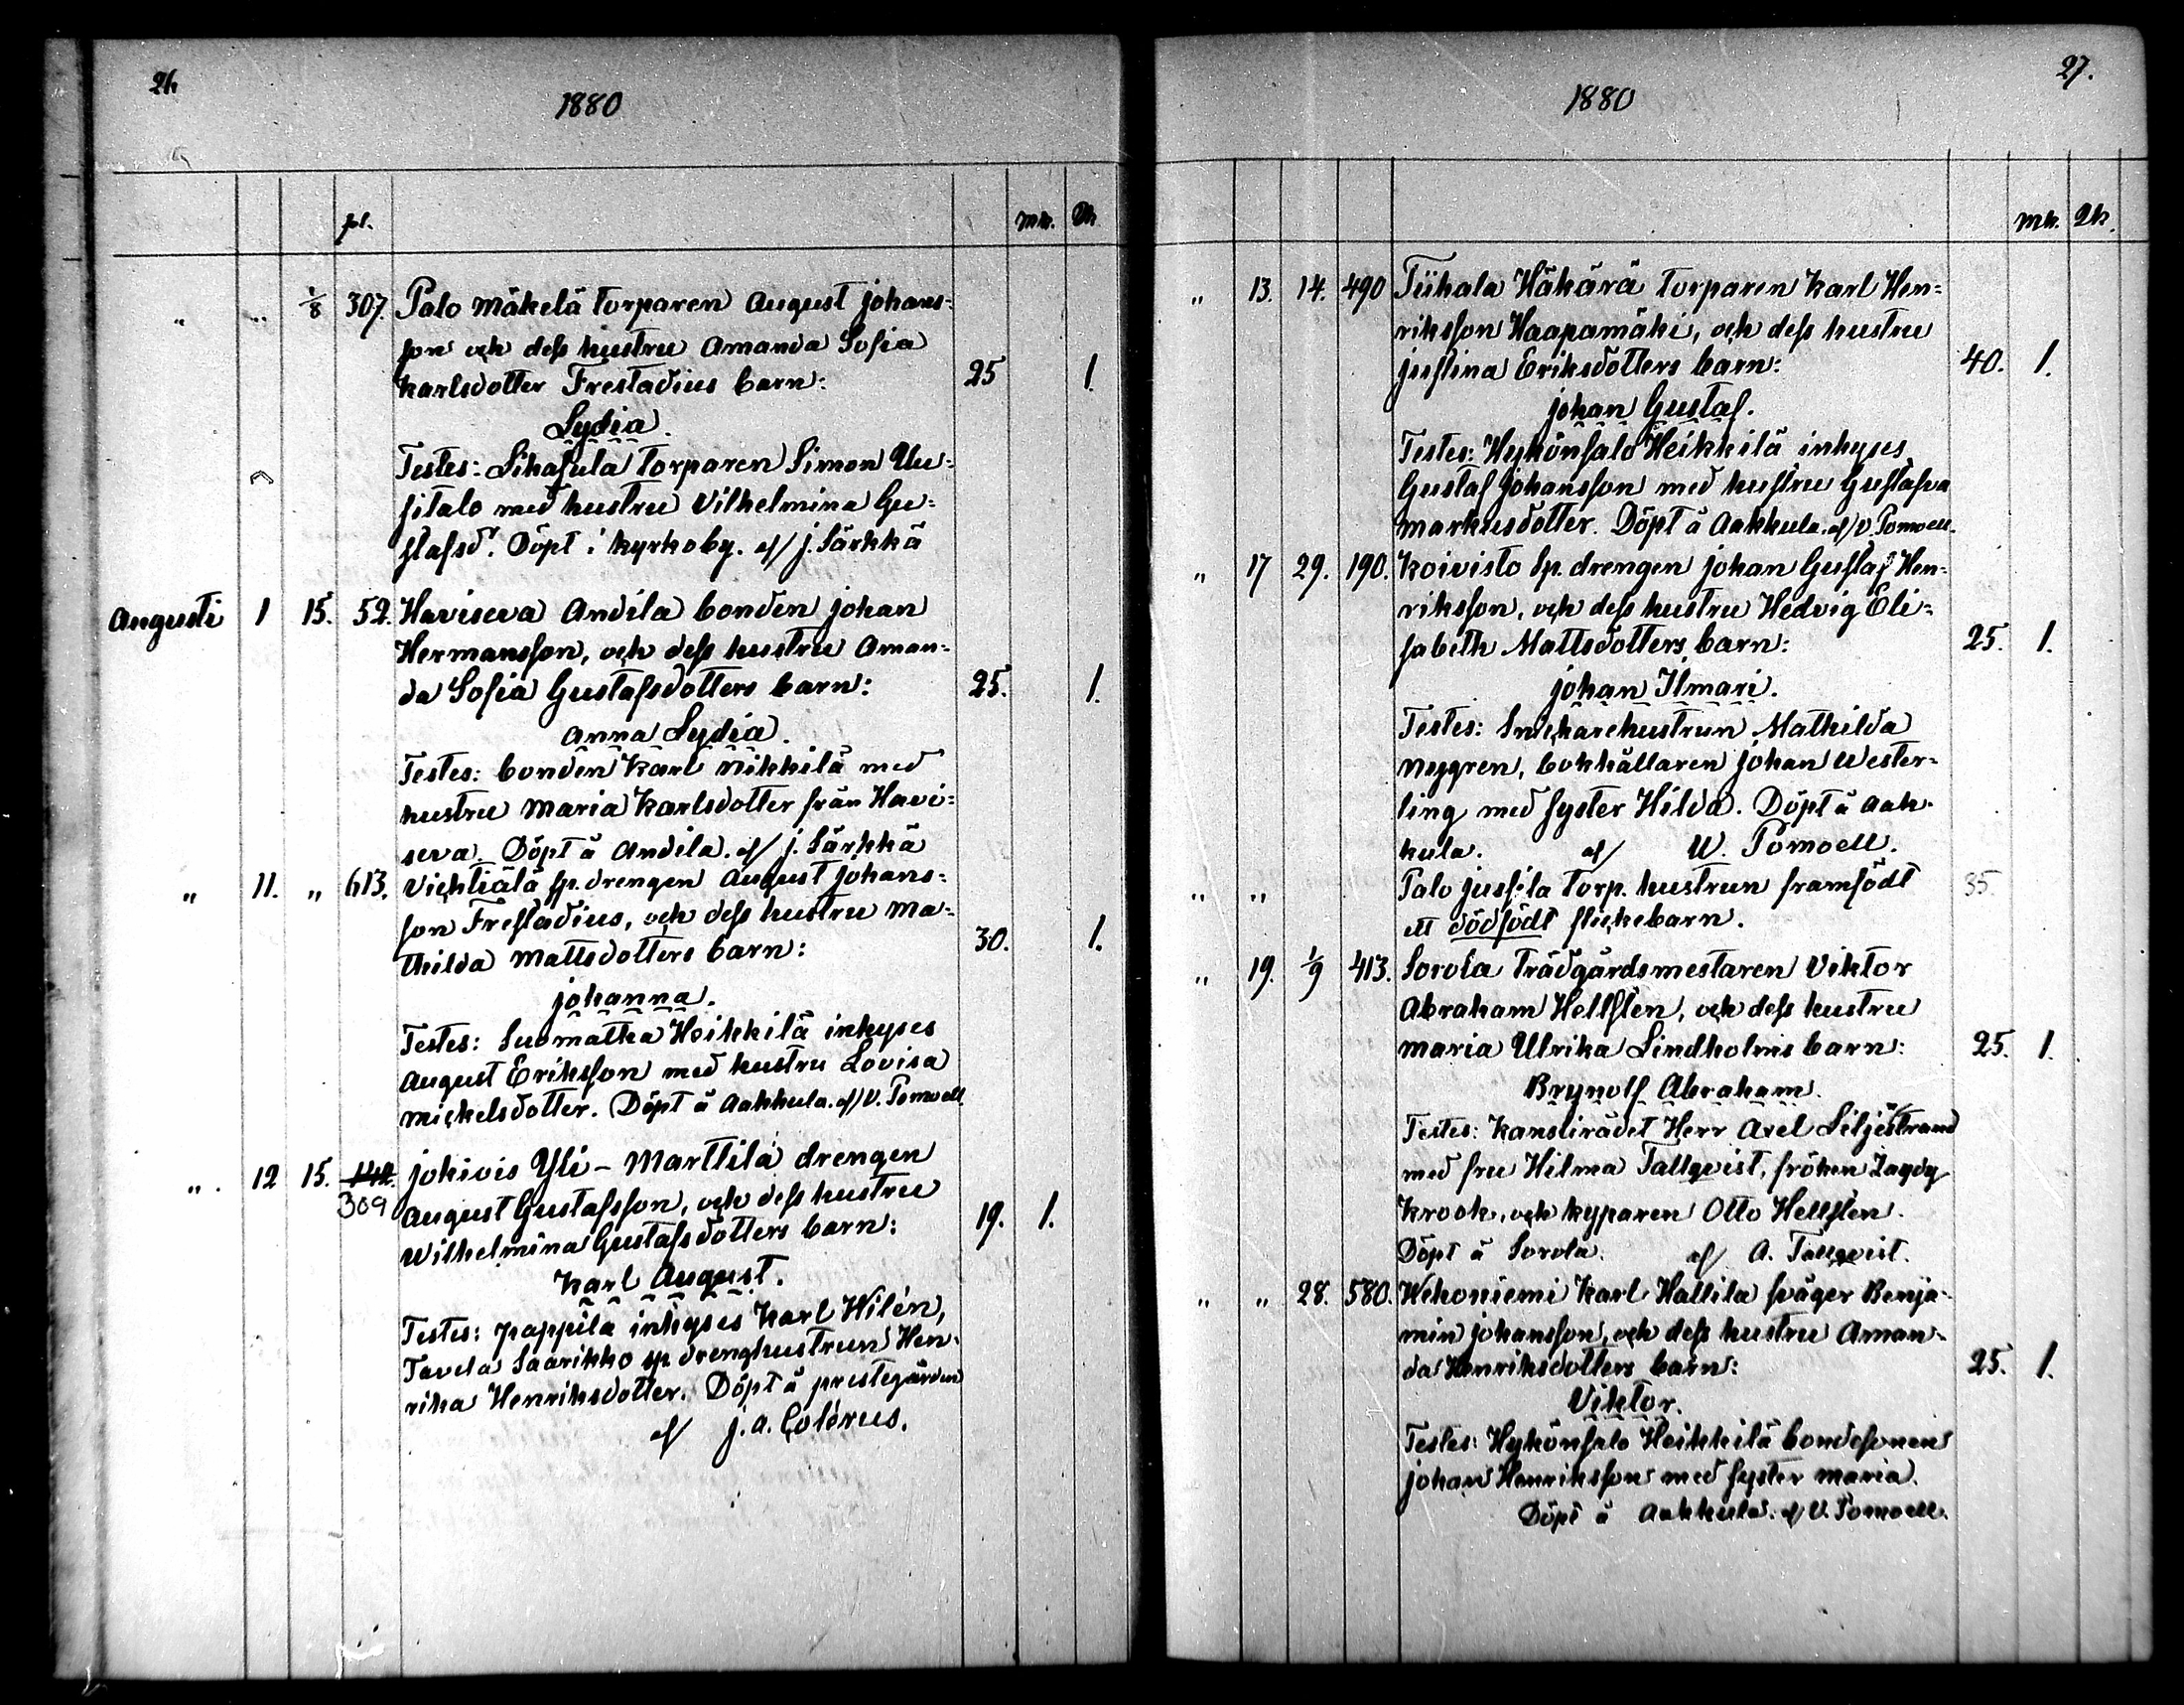 26.
1880
pol. Mk. Qk.
" " 1/8 307. Palo Mäkelä torparen August Johans=
son och dess hustru Amanda Sofia
Karlsdotter Frestadius barn: 25 1.
Lydia.
Testes: Sihasula torparen Simon Uu=
sitalo med hustru Vilhelmina Gu=
stafsd. Döpt i kyrkoby. af J. Särkkä
Augusti 1 15. 52. Haviseva Andila bonden Johan
Hermansson, och dess hustru Aman=
da Sofia Gustafsdotters barn: 25. 1.
Anna Lydia.
Testes: bonden Karl Nikkilä med
hustru Maria Karlsdotter från Havi=
seva. Döpt å Andila. af J. Särkkä
" 11. " 613. Viehtiälä sp. drengen August Johans=
son Frestadius, och dess hustru Ma=
thilda Mattsdotters barn: 30. 1.
Johanna.
Testes: Suomatka Heikkilä inhyses
August Eriksson med hustru Lovisa
Mickelsdotter. Döpt å Aakkula. af V. Pomoell.
" 12 15. 309 Jokivis Yli-Marttila drengen
August Gustafsson, och dess hustru
Wilhelmina Gustafsdotters barn: 19. 1.
Karl August.
Testes: Pappila inhyses Karl Hilén,
Tavela Saarikko sp. drenghustrun Hen=
rika Henriksdotter. Döpt å prestegården
af J. A. Colérus.
27.
1880
Mk. Qk.
" 13. 14. 490 Tiihala Häkärä torparen Karl Hen=
riksson Haapamäki, och dess hustru
Justina Eriksdotters barn: 40. 1.
Johan Gustaf.
Testes: Hykönsalo Heikkilä inhyses
Gustaf Johansson med hustru Gustafva
Markusdotter. Döpt å Aakkula. af V. Pomoell.
" 17 29. 190. Koivisto sp. drengen Johan Gustaf Hen=
riksson, och dess hustru Hedvig Eli=
sabeth Mattsdotters barn: 25. 1.
Johan Ilmari.
Testes: Snickarehustrun Mathilda
Nygren, bokhållaren Johan Wester=
ling med syster Hilda. Döpt å Aak=
kula. af W. Pomoell.
" " Palo Jussila torp. hustrun framfödt 35.
ett dödfödt flickebarn.
" 19. 1/9 413. Sorola Trädgårdsmestaren Viktor
Abraham Hellsten, och dess hustru
Maria Ulrika Lindholms barn: 25. 1.
Brynolf Abraham.
Testes: Kanslirådet Herr Axel Liljestrand
med fru Hilma Tallqvist, fröken Zaydy
Krook, och kyparen Otto Hellsten.
Döpt å Sorola. af A. Tallqvist.
" " 28. 580. Wehoniemi Karl Hallila svåger Benja=
min Johansson, och dess hustru Aman=
da Henriksdotters barn: 25. 1.
Viktor.
Testes: Hykönsalo Heikkilä bondesonen
Johan Henriksson med syster Maria.
Döpt å Aakkula. af V. Pomoell.